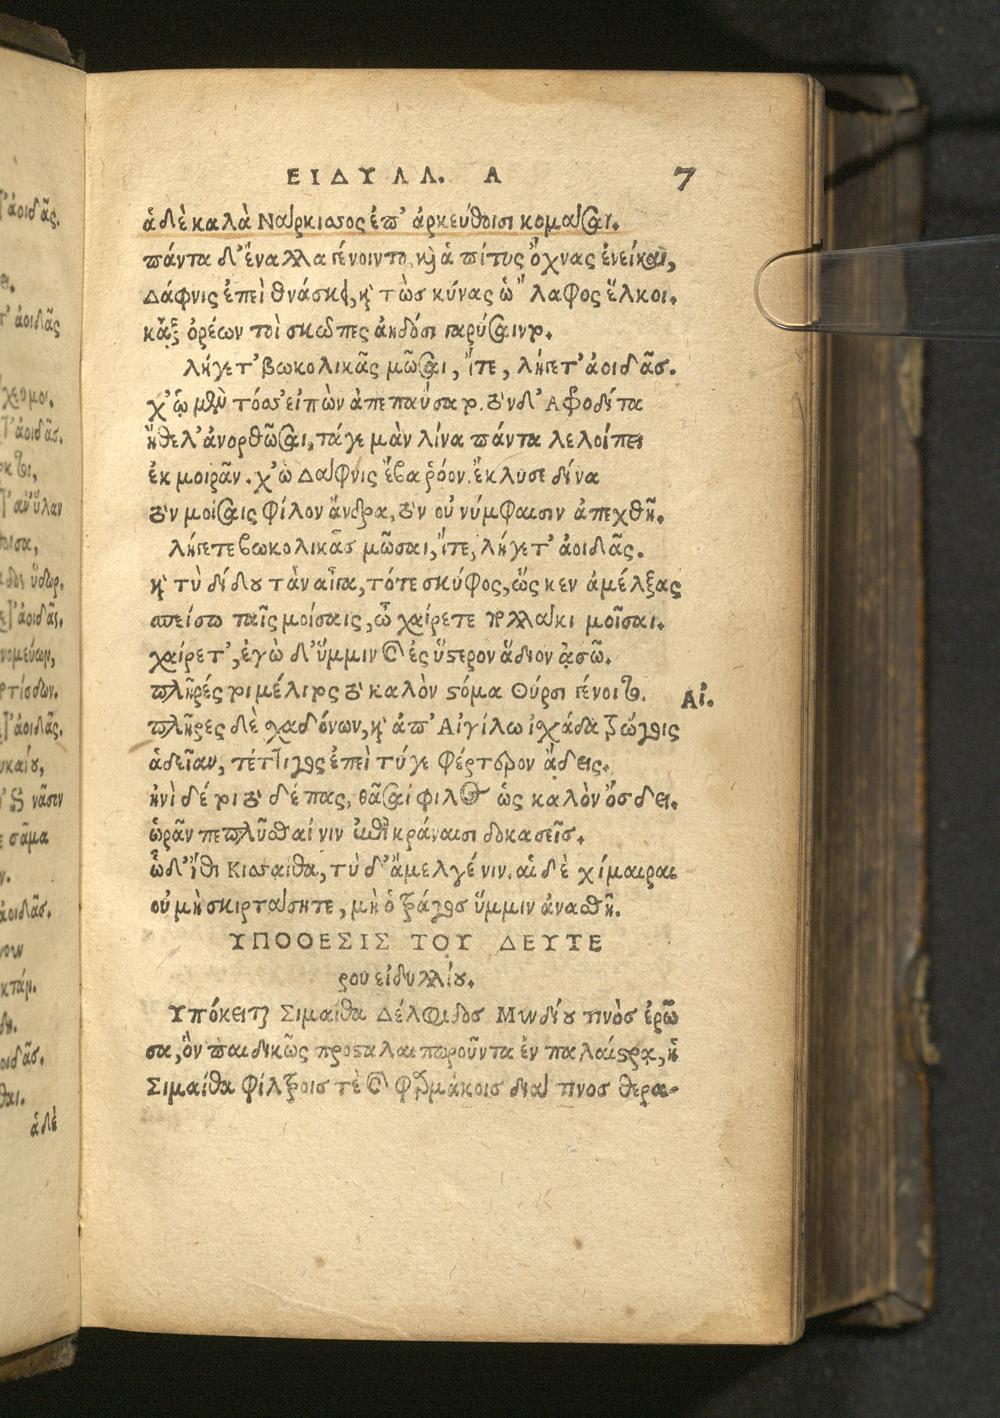 ΕΙΔΥΛΛ. Α 7
ἁ δὲ καλὰ Νάρκισσος ἐπ' ἀρκεύθοισι κομάσαι.
πάντα δ' ἔναλλα γένοιντο, καὶ ἁ πίτυς ὄχνας ἐνείκαι,
Δάφνις ἐπεὶ θνάσκει, καὶ τὼς κύνας ὡ῎λαφος ἕλκοι.
κἠξ ὀρέων τοὶ σκῶπες ἀηδόσι γαρύσαιντο.
λήγετ' βωκολικᾶς μῶσαι, ἴτε, λήγετ' ἀοιδᾶς.
χ' ᾡ μὲν τόσσ' εἰπὼν ἀπεπαύσατο. τὸν δ' Ἀφροδίτα
ἤθελ' ἀνορθῶσαι, τάγε μὰν λίνα πάντα λελοίπει
ἐκ μοιρᾶν. χ' ὡ Δάφνις ἔβα ῥόον. ἔκλυσε δίνα
τὸν μοίσαις φίλον ἄνδρα, τὸν οὐ νύμφαισιν ἀπεχθῆ.
λήγετε βωκολικᾶς μῶσαι, ἴτε, λήγετ' ἀοιδᾶς.
καὶ τὺ δίδου τὰν αἶγα, τότε σκύφος, ὥς κεν ἀμέλξας
σπείσω ταῖς μοίσαις, ὦ χαίρετε πολλάκι μοῖσαι.
χαίρετ', ἐγὼ δ' ὔμμιν καὶ ἐς ὕστερον ἅδιον ᾀσῶ.
πλῆρές τοι μέλιτος τὸ καλὸν στόμα Θύρσι γένοιτο. Αἰ.
πλῆρες δὲ σχαδόνων, καὶ ἀπ' Αἰγίλω ἰσχάδα τρώγοις
ἁδεῖαν, τέττιγος ἐπεὶ τύγε φέρτερον ᾄδεις.
ἠνὶ δέ τοι τὸ δέπας, θᾶσαι φίλος ὡς καλὸν ὄσδει.
ὡρᾶν πεπλῦσθαί νιν ἐπὶ κράναισι δοκασεῖς.
ὧδ' ἴθι Κισσαίθα, τὺ δ' ἄμελγέ νιν. αἱ δὲ χίμαιραι
οὐ μὴ σκιρτάσητε, μὴ ὁ τράγος ὔμμιν ἀναστῆ.
ΥΠΟΘΕΣΙΣ ΤΟΥ ΔΕΥΤΕ
ρου εἰδυλλίου.
Υπόκειται Σιμαίθα Δέλφιδος Μυνδίου τινὸς ἐρῶ
σα, ὃν παιδικῶς προσταλαιπωροῦντα ἐν παλαίστρᾳ, ἡ
Σιμαίθα φίλτροις τὲ καὶ φαρμάκοις διά τινος θερα-